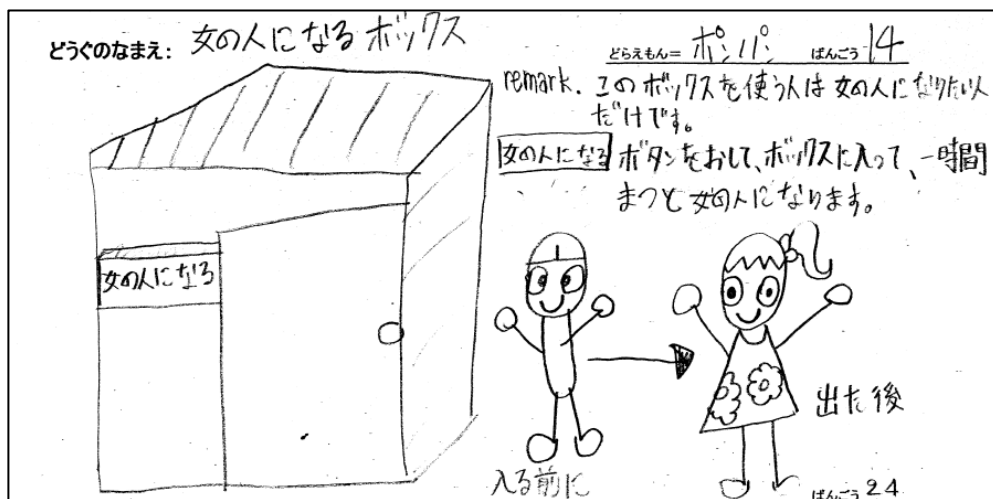 どうぐのなまえ: 女の人になるボックス
どらえもん= ポンパン ばんごう 14
remark. このボックスを使う人は女の人になりたい人
だけです。
女の人になる ボタンをおして、ボックスに入って、一時間
まつと女の人になります。
女の人になる
入る前に
出た後
ばんごう 24